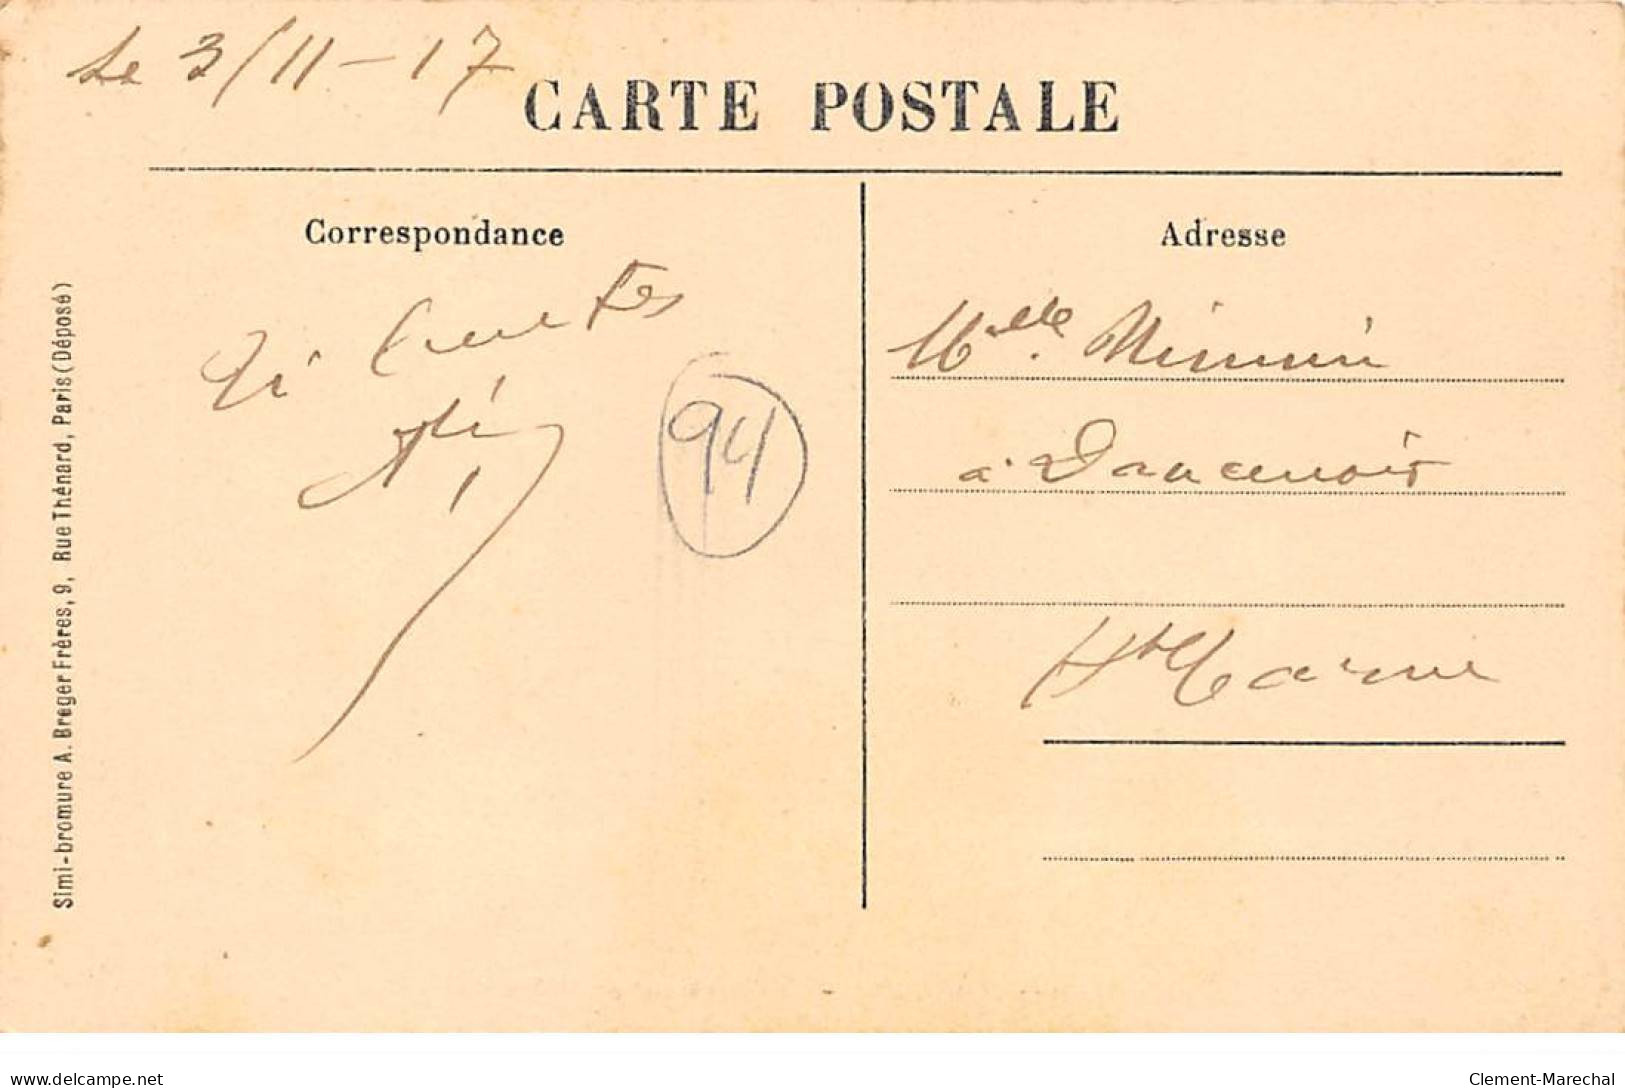 Le 3/11-17
CARTE POSTALE
Correspondance
Adresse
94
Mlle. Minmin
à Doucenoir
Hte Marne
Simi-bromure A. Breger Frères, 9, Rue Thénard, Paris (Déposé)
www.delcampe.net
Clement-Marechal